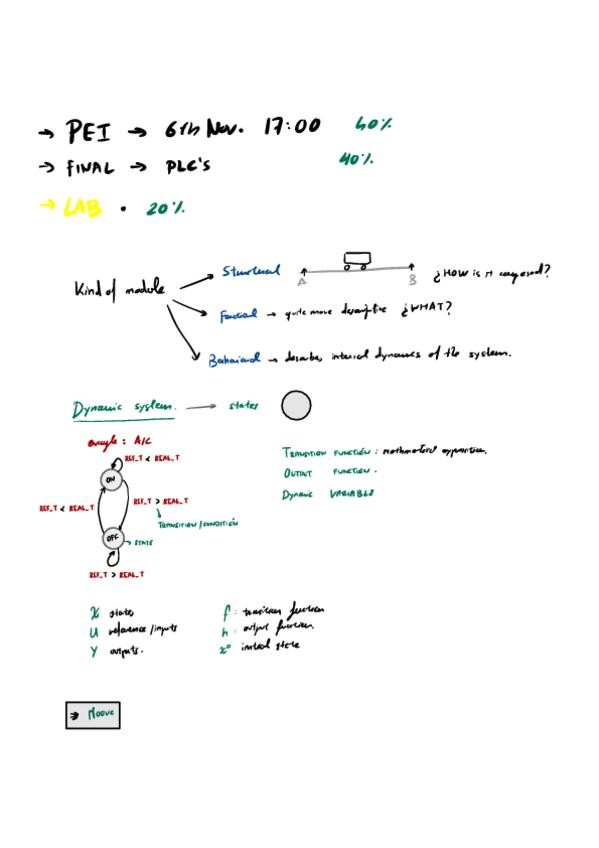 → PEI → 6th Nov. 17:00 40%
→ FINAL → PLC's 40%
→ LAB • 20%
Kind of module
→ Structural A B ¿HOW is it composed?
→ Functional → quite more descriptive ¿WHAT?
→ Behavioral → describes internal dynamics of the system.
Dynamic system. → states
example: A/C
REF_T < REAL_T
ON
REF_T < REAL_T
REF_T > REAL_T
TRANSITION/CONDITION
OFF → STATE
REF_T > REAL_T
TRANSITION FUNCTION: mathematical expression.
OUTPUT FUNCTION.
DYNAMIC VARIABLE
X states
U reference/inputs
Y outputs.
f: transition function
h: output function.
x° initial state
→ Moore